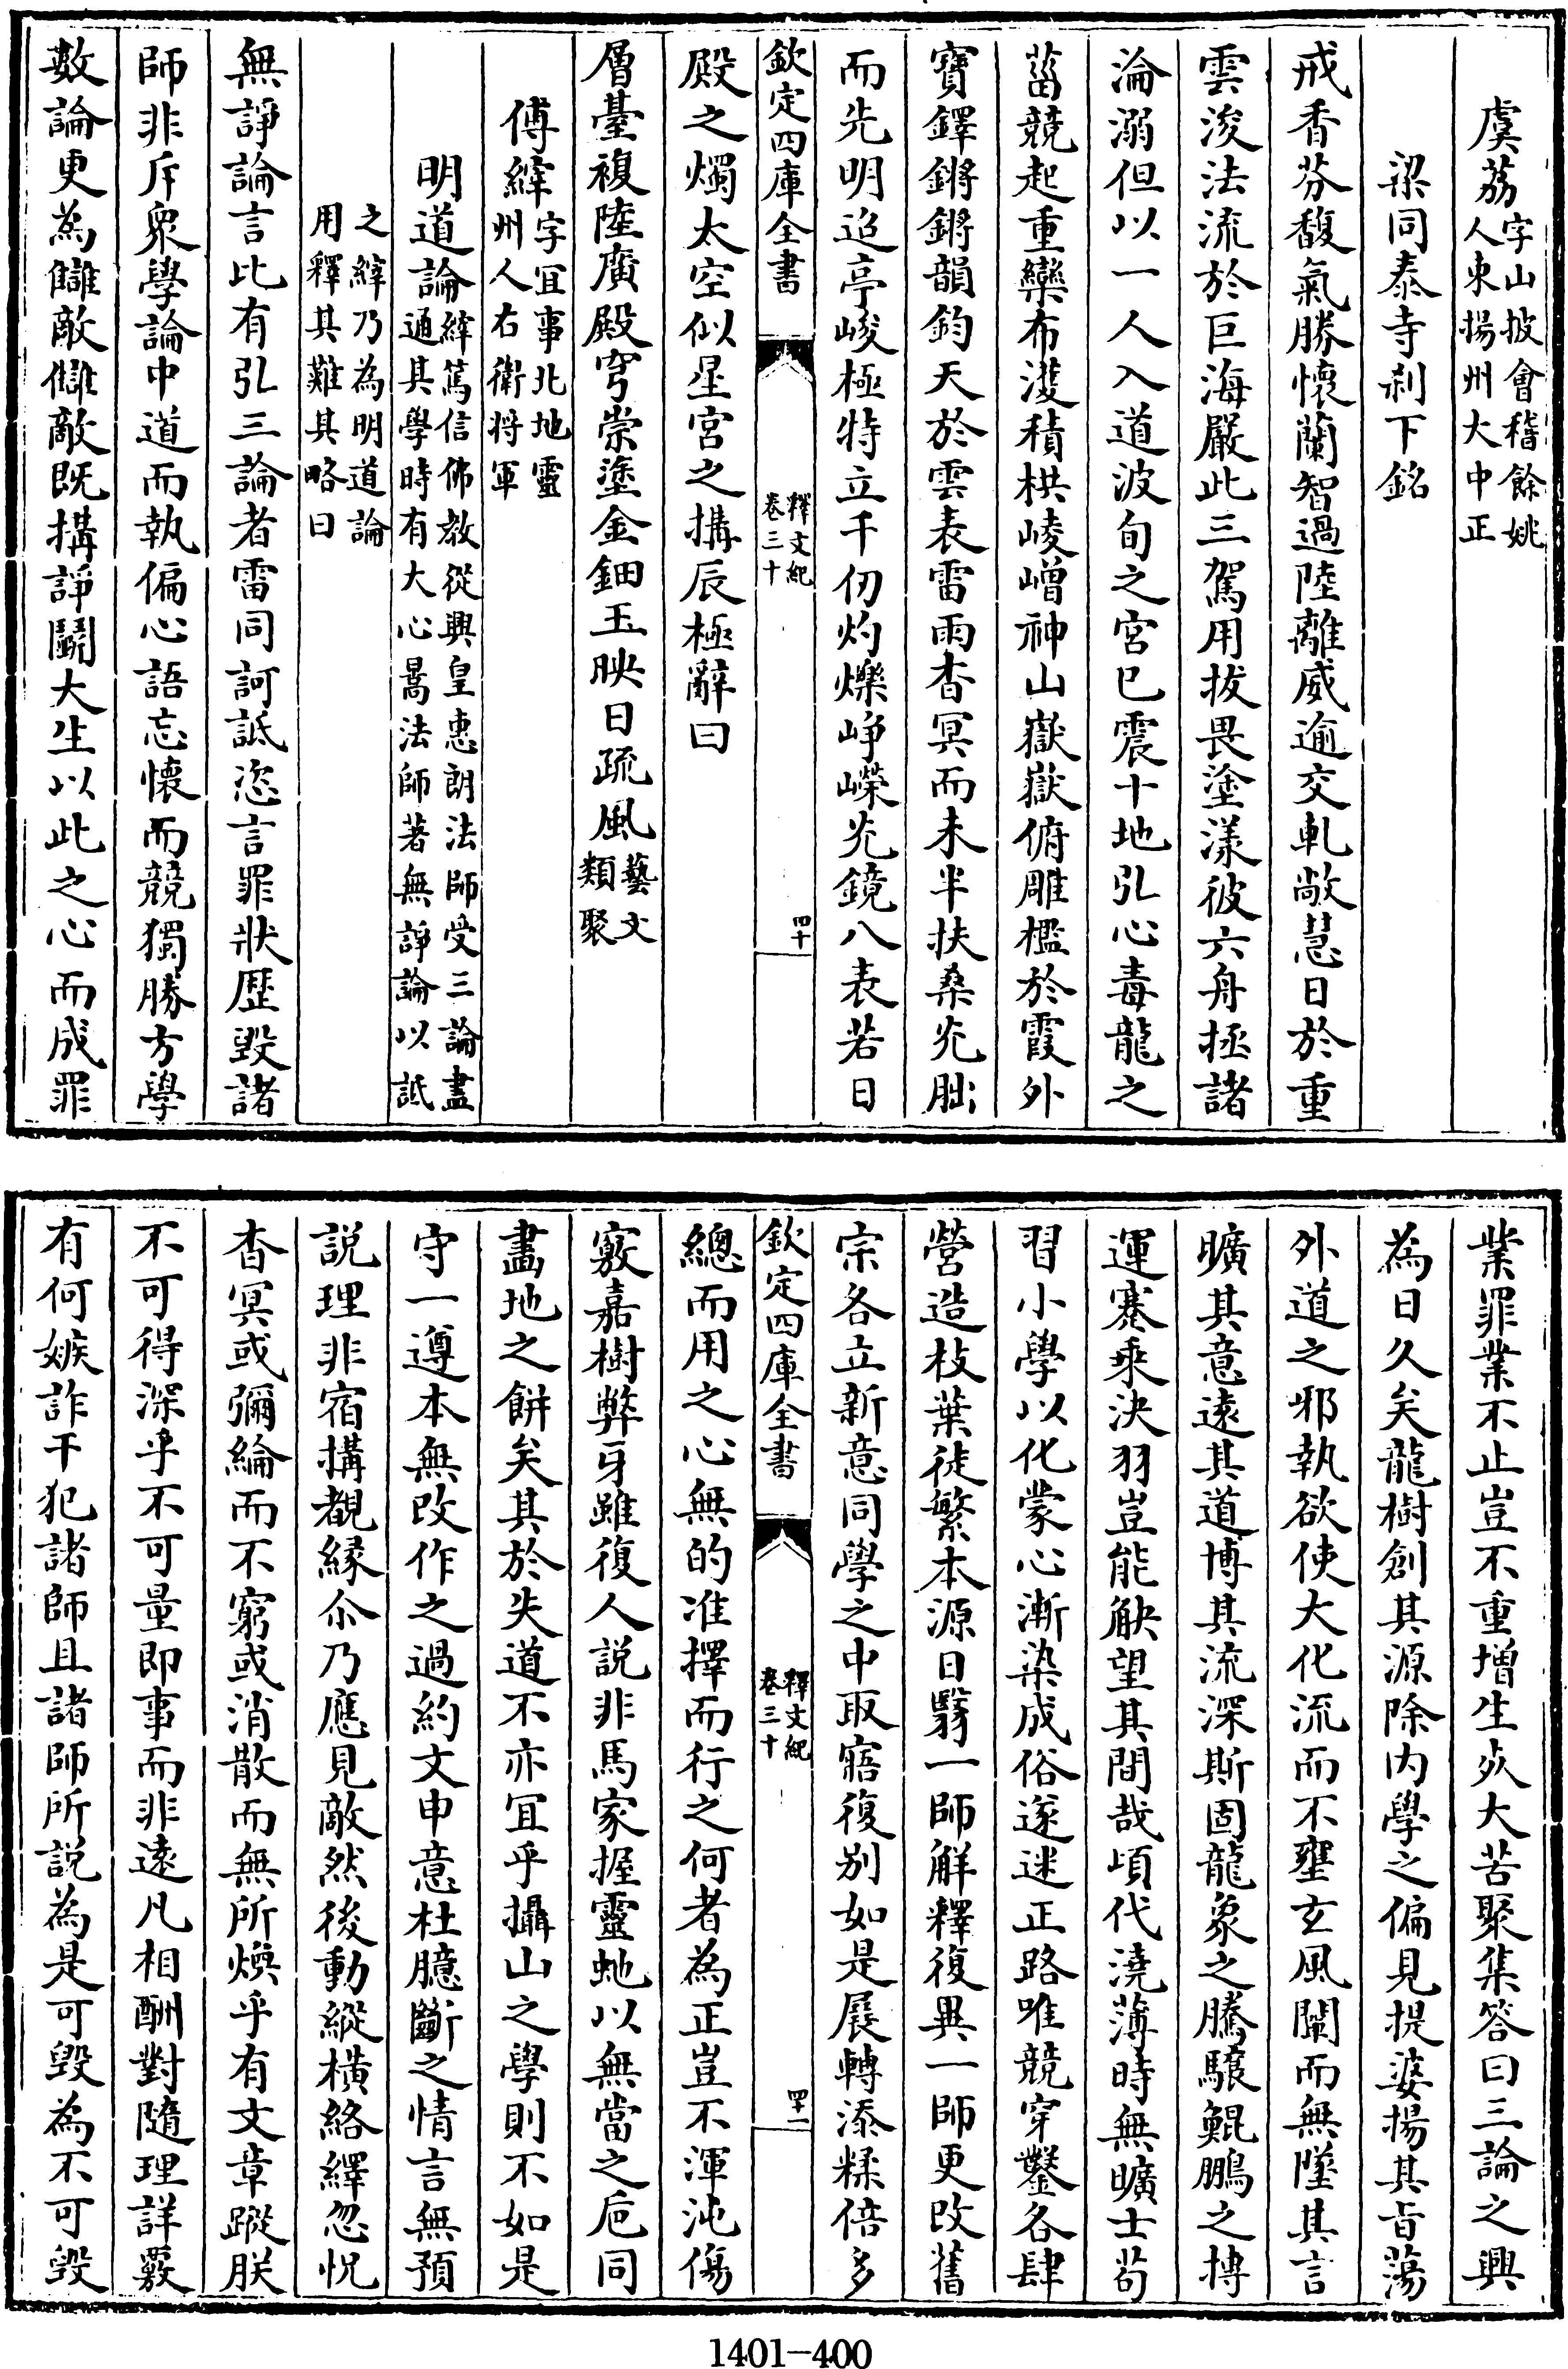 虞荔字山披會稽餘姚人東揚州大中正
梁同泰寺刹下銘
戒香芬馥氣勝懷蘭智過陸離威逾交軋敞慧日於重
雲浚法流於巨海嚴此三駕用拔畏塗漾彼六舟拯諸
淪溺但以一人入道波旬之宮已震十地弘心毒龍之
菑競起重欒布濩積栱崚嶒神山嶽嶽俯雕檻於霞外
寶鐸鏘鏘韻鈞天於雲表雷雨杳冥而未半扶桑光朏
而先明迢亭峻極特立千仞灼爍崢嶸光鏡八表若日
欽定四庫全書 釋文紀卷三十 四十
殿之燭太空似星宮之搆辰極辭曰
層臺複陸廣殿穹崇塗金鈿玉映日疏風藝文類聚
傅縡字宜事北地靈州人右衛將軍
明道論縡篤信佛教從興皇惠朗法師受三論盡通其學時有大心暠法師著無諍論以詆
之縡乃為明道論用釋其難其略曰
無諍論言比有弘三論者雷同訶詆恣言罪狀歴毀諸
師非斥衆學論中道而執偏心語忘懷而競獨勝方學
數論更為讎敵讎敵既搆諍鬭大生以此之心而成罪
業罪業不止豈不重增生死大苦聚集答曰三論之興
為日久矣龍樹創其源除内學之偏見提婆揚其旨蕩
外道之邪執欲使大化流而不壅玄風闡而無墜其言
曠其意遠其道博其流深斯固龍象之騰驤鯤鵬之摶
運蹇乘決羽豈能觖望其間哉頃代澆薄時無曠士苟
習小學以化蒙心漸染成俗遂迷正路唯競穿鑿各肆
營造枝葉徒繁本源日翳一師解釋復異一師更改舊
宗各立新意同學之中取寤復别如是展轉添糅倍多
欽定四庫全書 釋文紀卷三十 四十一
總而用之心無的准擇而行之何者為正豈不渾沌傷
竅嘉樹弊牙雖復人説非馬家握靈虵以無當之巵同
畫地之餅矣其於失道不亦宜乎攝山之學則不如是
守一遵本無改作之過約文申意杜臆斷之情言無預
説理非宿搆覩縁尒乃應見敵然後動縱横絡繹忽怳
杳冥或彌綸而不窮或消散而無所煥乎有文章蹤朕
不可得深乎不可量即事而非遠凡相酬對隨理詳覈
有何嫉詐干犯諸師且諸師所説為是可毀為不可毀
1401-400